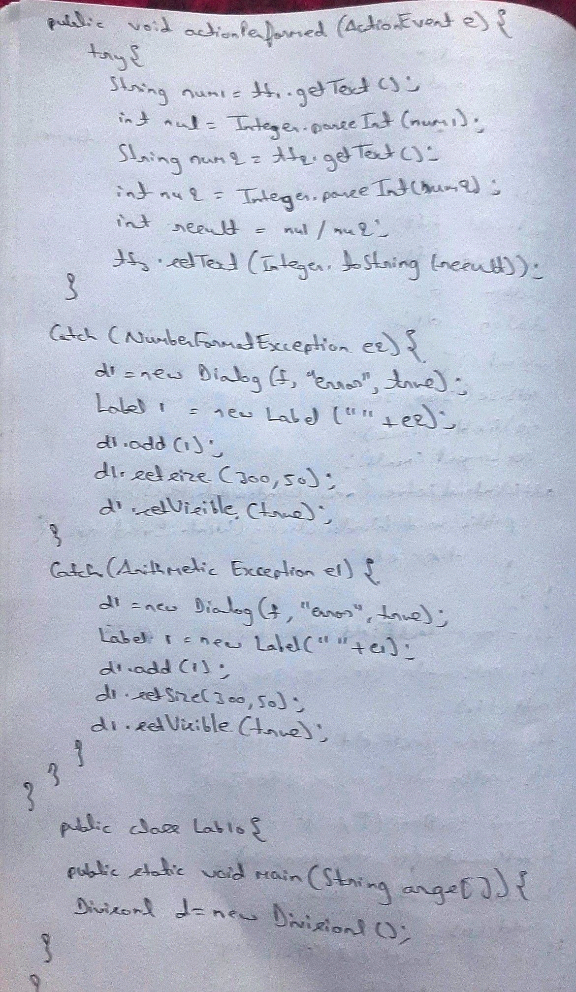 public void actionPerformed (ActionEvent e) {
try {
String num1 = tf1.getText();
int nu1 = Integer.parseInt (num1);
String num2 = tf2.getText();
int nu2 = Integer.parseInt(num2);
int result = nu1 / nu2;
tf3.setText (Integer.toString (result));
}
Catch (NumberFormatException e2) {
d1 = new Dialog (f, "error", true);
Label l = new Label ("" + e2);
d1.add (l);
d1.setsize (300, 50);
d1.setVisible (true);
}
Catch (Arithmetic Exception e1) {
d1 = new Dialog (f, "error", true);
Label l = new Label (" " + e1);
d1.add (l);
d1.setSize (300, 50);
d1.setVisible (true);
}
}
}
public class Lab10 {
public static void main (String args[]) {
Division1 d = new Division1 ();
}
}